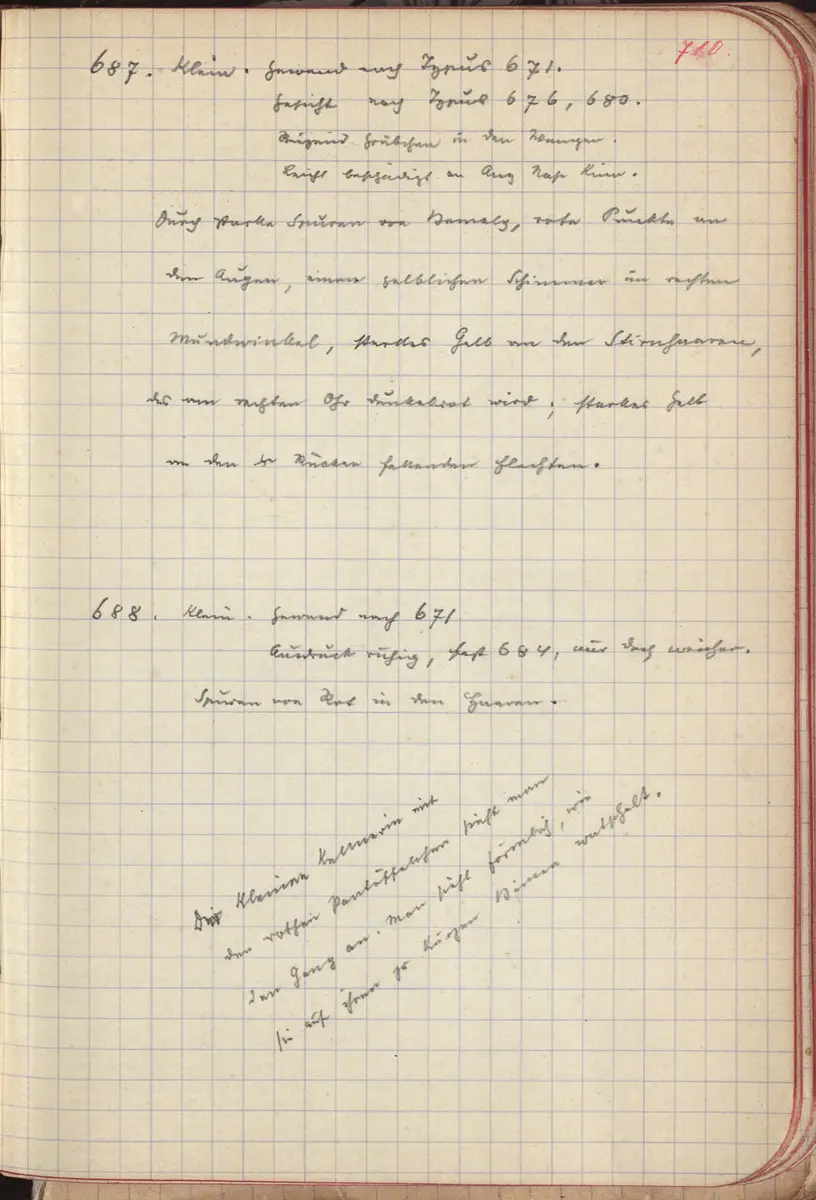 710.
687. Klein. Gewand nach Typus 671.
Gesicht nach Typus 676, 680.
Reizend Grübchen in den Wangen.
Leicht beschädigt an Aug Nase Kinn.
Durch starke Spuren von Bemalg, rote Punkte an
den Augen, einen gelblichen Schimmer im rechten
Mundwinkel, starkes Gelb an den Stirnhaaren,
das am rechten Ohr dunkelrot wird; starkes Gelb
an den Rücken fallenden Flechten.
688. Klein. Gewand nach 671
Ausdruck ruhig, fast 684, nur doch weicher.
Spuren von Rot in den Haaren.
Der kleinen Kellnerin mit
den rothen Pantöffelchen sieht man
den Gang an. Man sieht förmlich, wie
sie auf ihren zu kurzen Beinen watschelt.